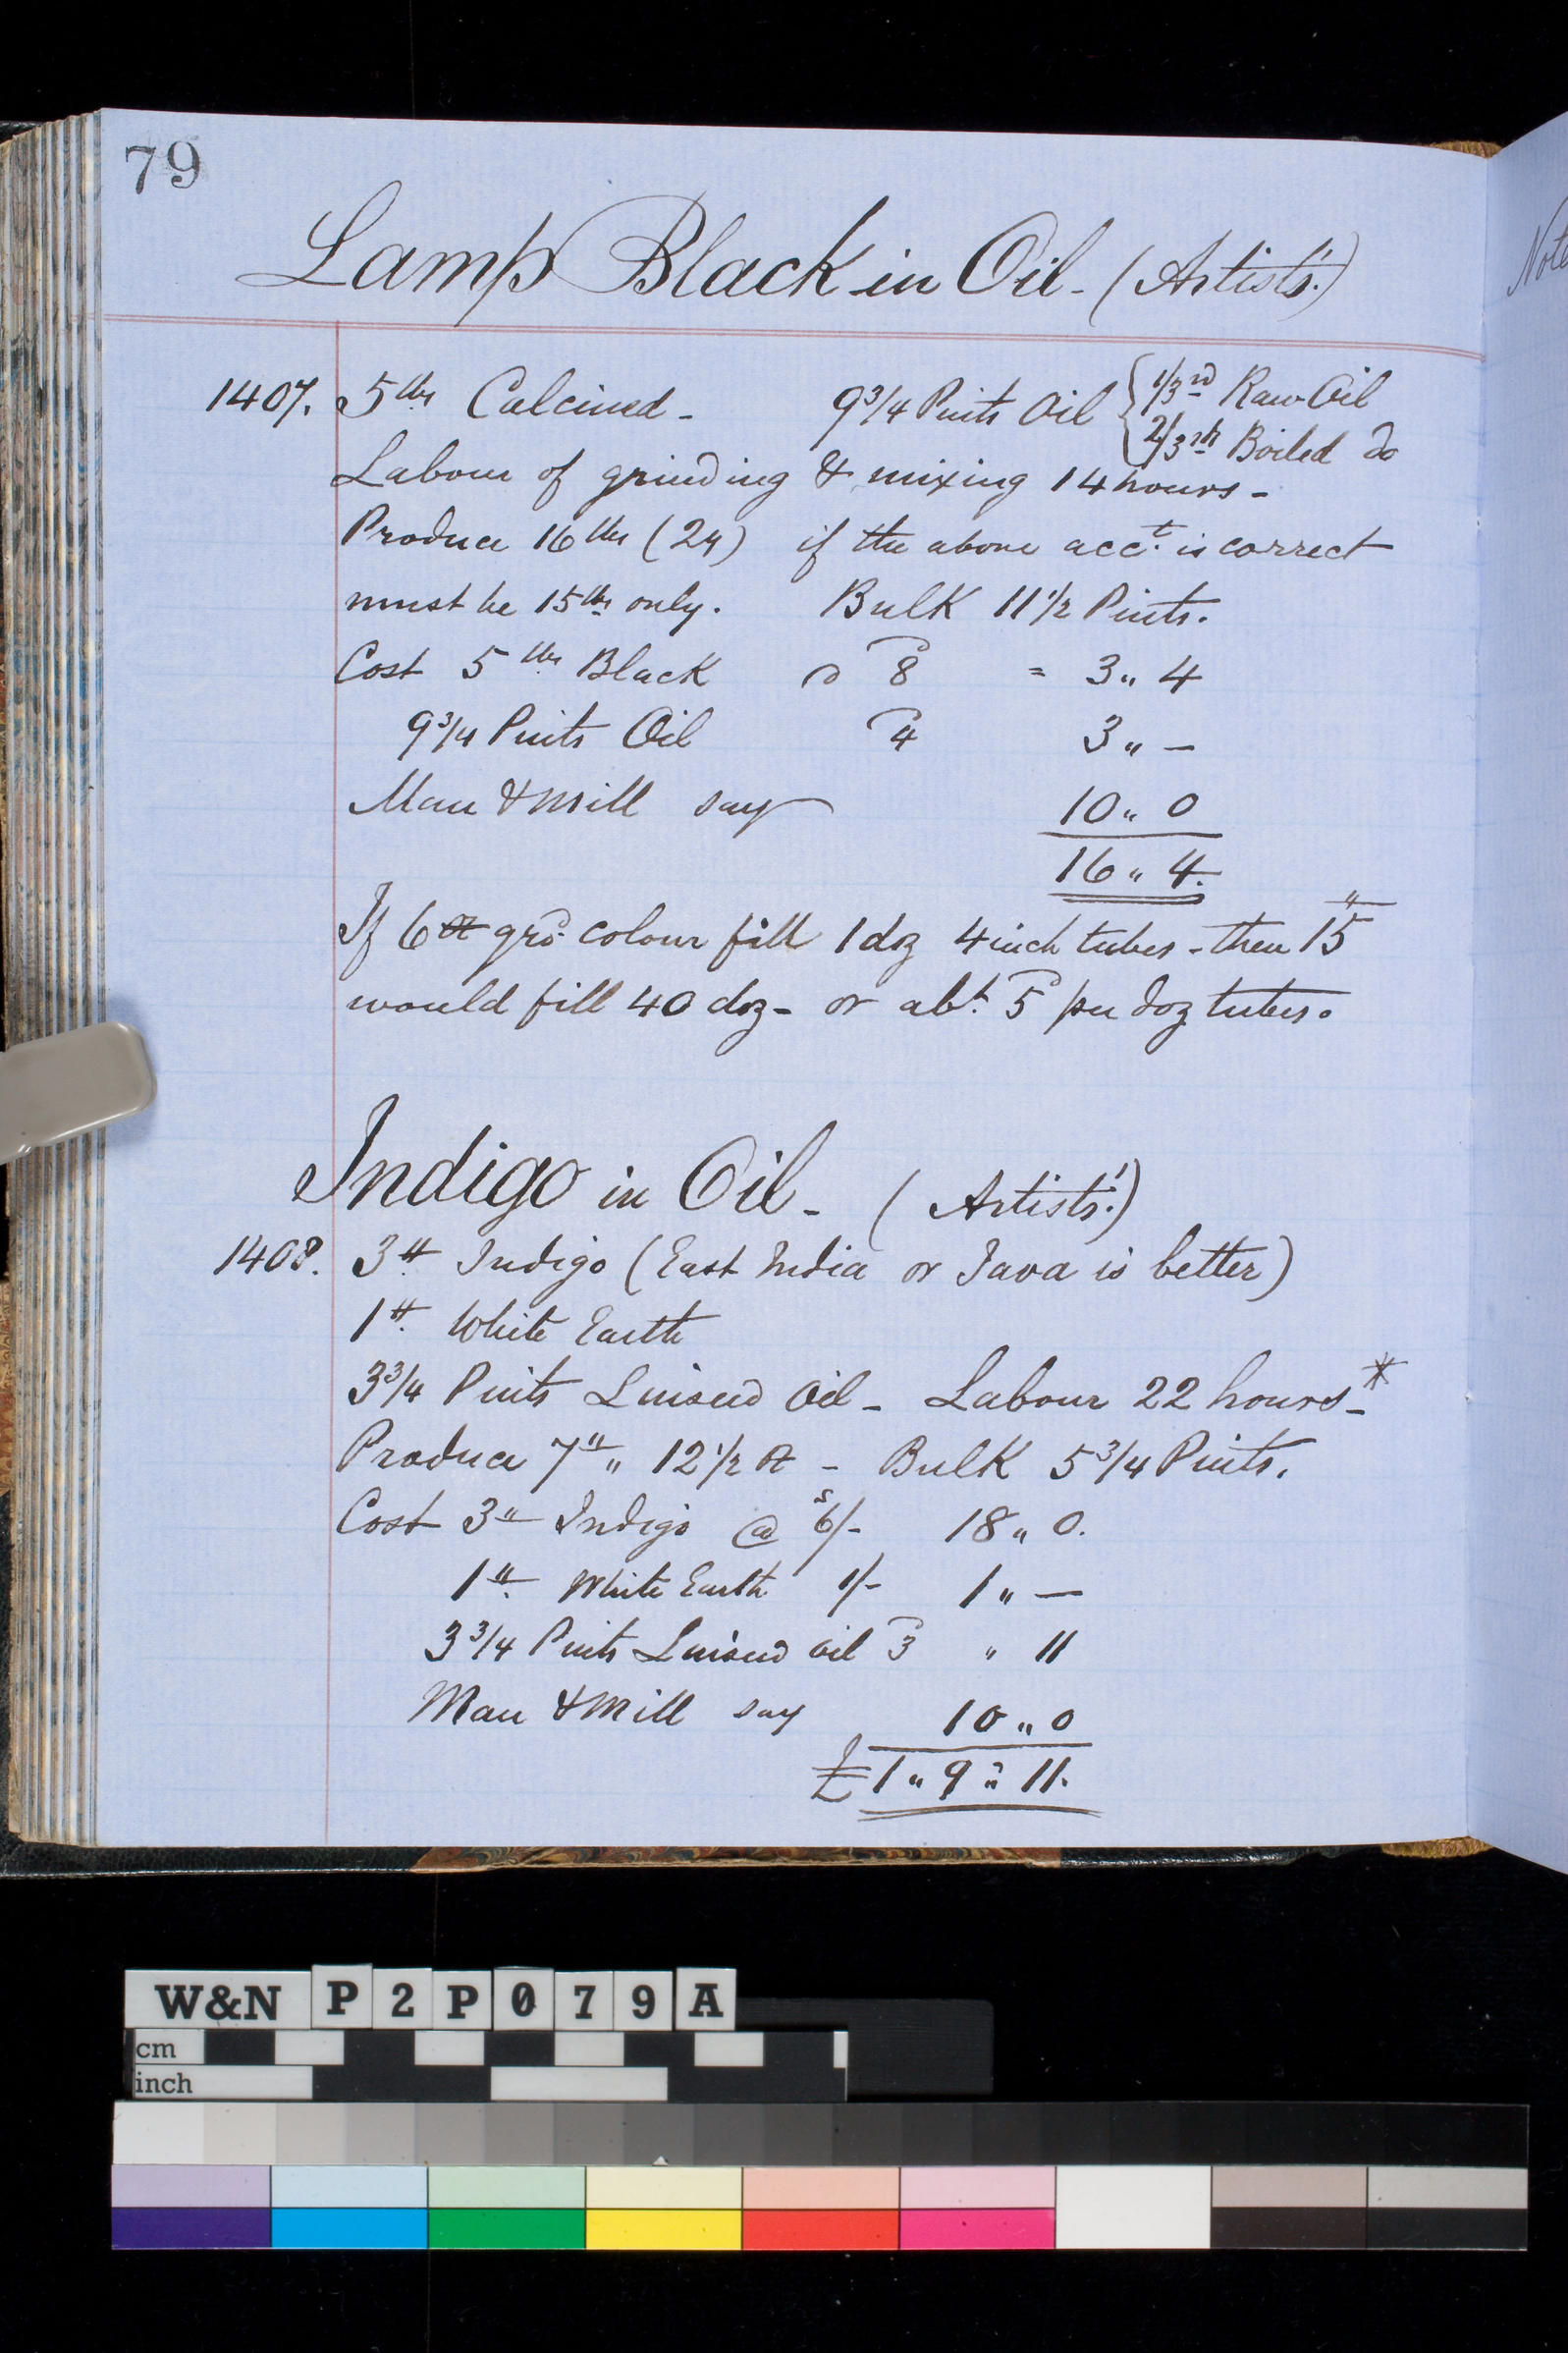 79
Lamp Black in Oil - (Artists'.)
1407. 5 lbs Calcined - 9 3/4 Pints Oil { 1/3rd Raw Oil
2/3rds Boiled do
Labour of grinding & mixing 14 hours -
Produce 16 lbs (24) if the above acct. is correct
must be 15 lbs only. Bulk 11 1/2 Pints.
Cost 5 lbs Black @ 8 = 3 " 4
9 3/4 Pints Oil 4 3 " -
Man & Mill say 10 " 0
16 " 4.
If 6 oz grd. colour fill 1 doz 4 inch tubes - then 15 "
would fill 40 doz - or abt. 5 per doz tubes.
Indigo in Oil - (Artists'.)
1408. 3 lb Indigo (East India or Java is better)
1 lb White Earth
3 3/4 Pints Linseed Oil - Labour 22 hours - *
Produce 7 lb " 12 1/2 oz - Bulk 5 3/4 Pints.
Cost 3 lb Indigo @ s6/- 18 " 0.
1 lb White Earth 1/- 1 " -
3 3/4 Pints Linseed oil 3 " 11
Man & Mill say 10 " 0
£1 " 9 " 11.
Note
W&N P2P079A
cm
inch